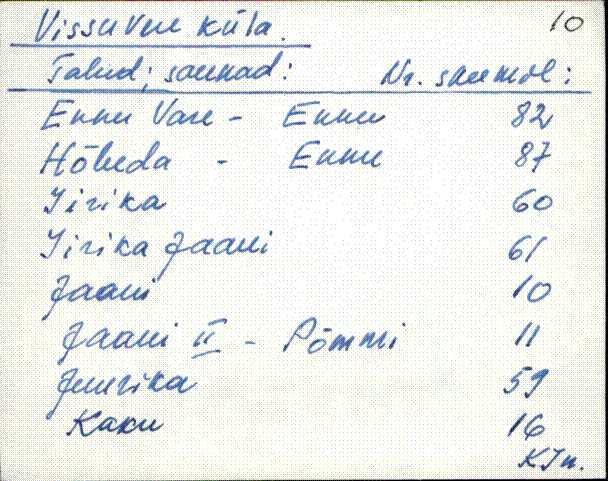 Vissuvere küla. 10
Talud; saunad: Nr. skeemil:
Ennu Vare - Ennu 82
Hõbeda - Ennu 87
Jirika 60
Jirika Jaani 61
Jaani 10
Jaani II - Põmmi 11
59
Kaku 16